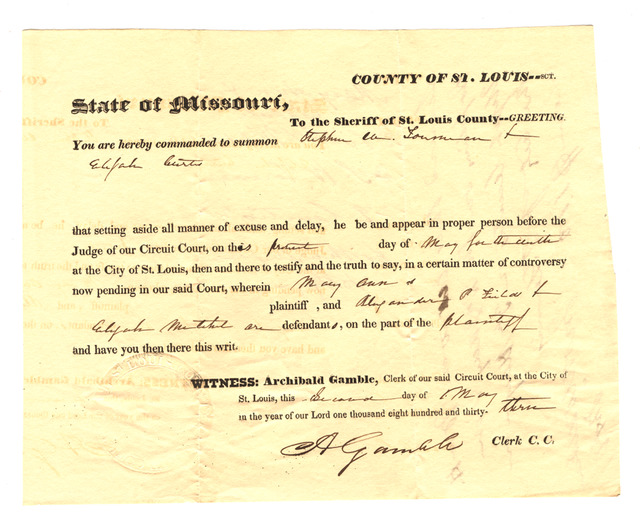 COUNTY OF ST. LOUIS--SCT.
State of Missouri,
To the Sheriff of St. Louis County--GREETING.
You are hereby commanded to summon Stephen W. &
Elijah Curtis
that setting aside all manner of excuse and delay, he be and appear in proper person before the
Judge of our Circuit Court, on this present day of May forthwith
at the City of St. Louis, then and there to testify and the truth to say, in a certain matter of controversy
now pending in our said Court, wherein Mary Ann is
plaintiff, and Alexander P Field &
Elijah Mitchel are defendants, on the part of the plaintiff
and have you then there this writ.
WITNESS: Archibald Gamble, Clerk of our said Circuit Court, at the City of
St. Louis, this Second day of May
in the year of our Lord one thousand eight hundred and thirty- three
A Gamble Clerk C. C.